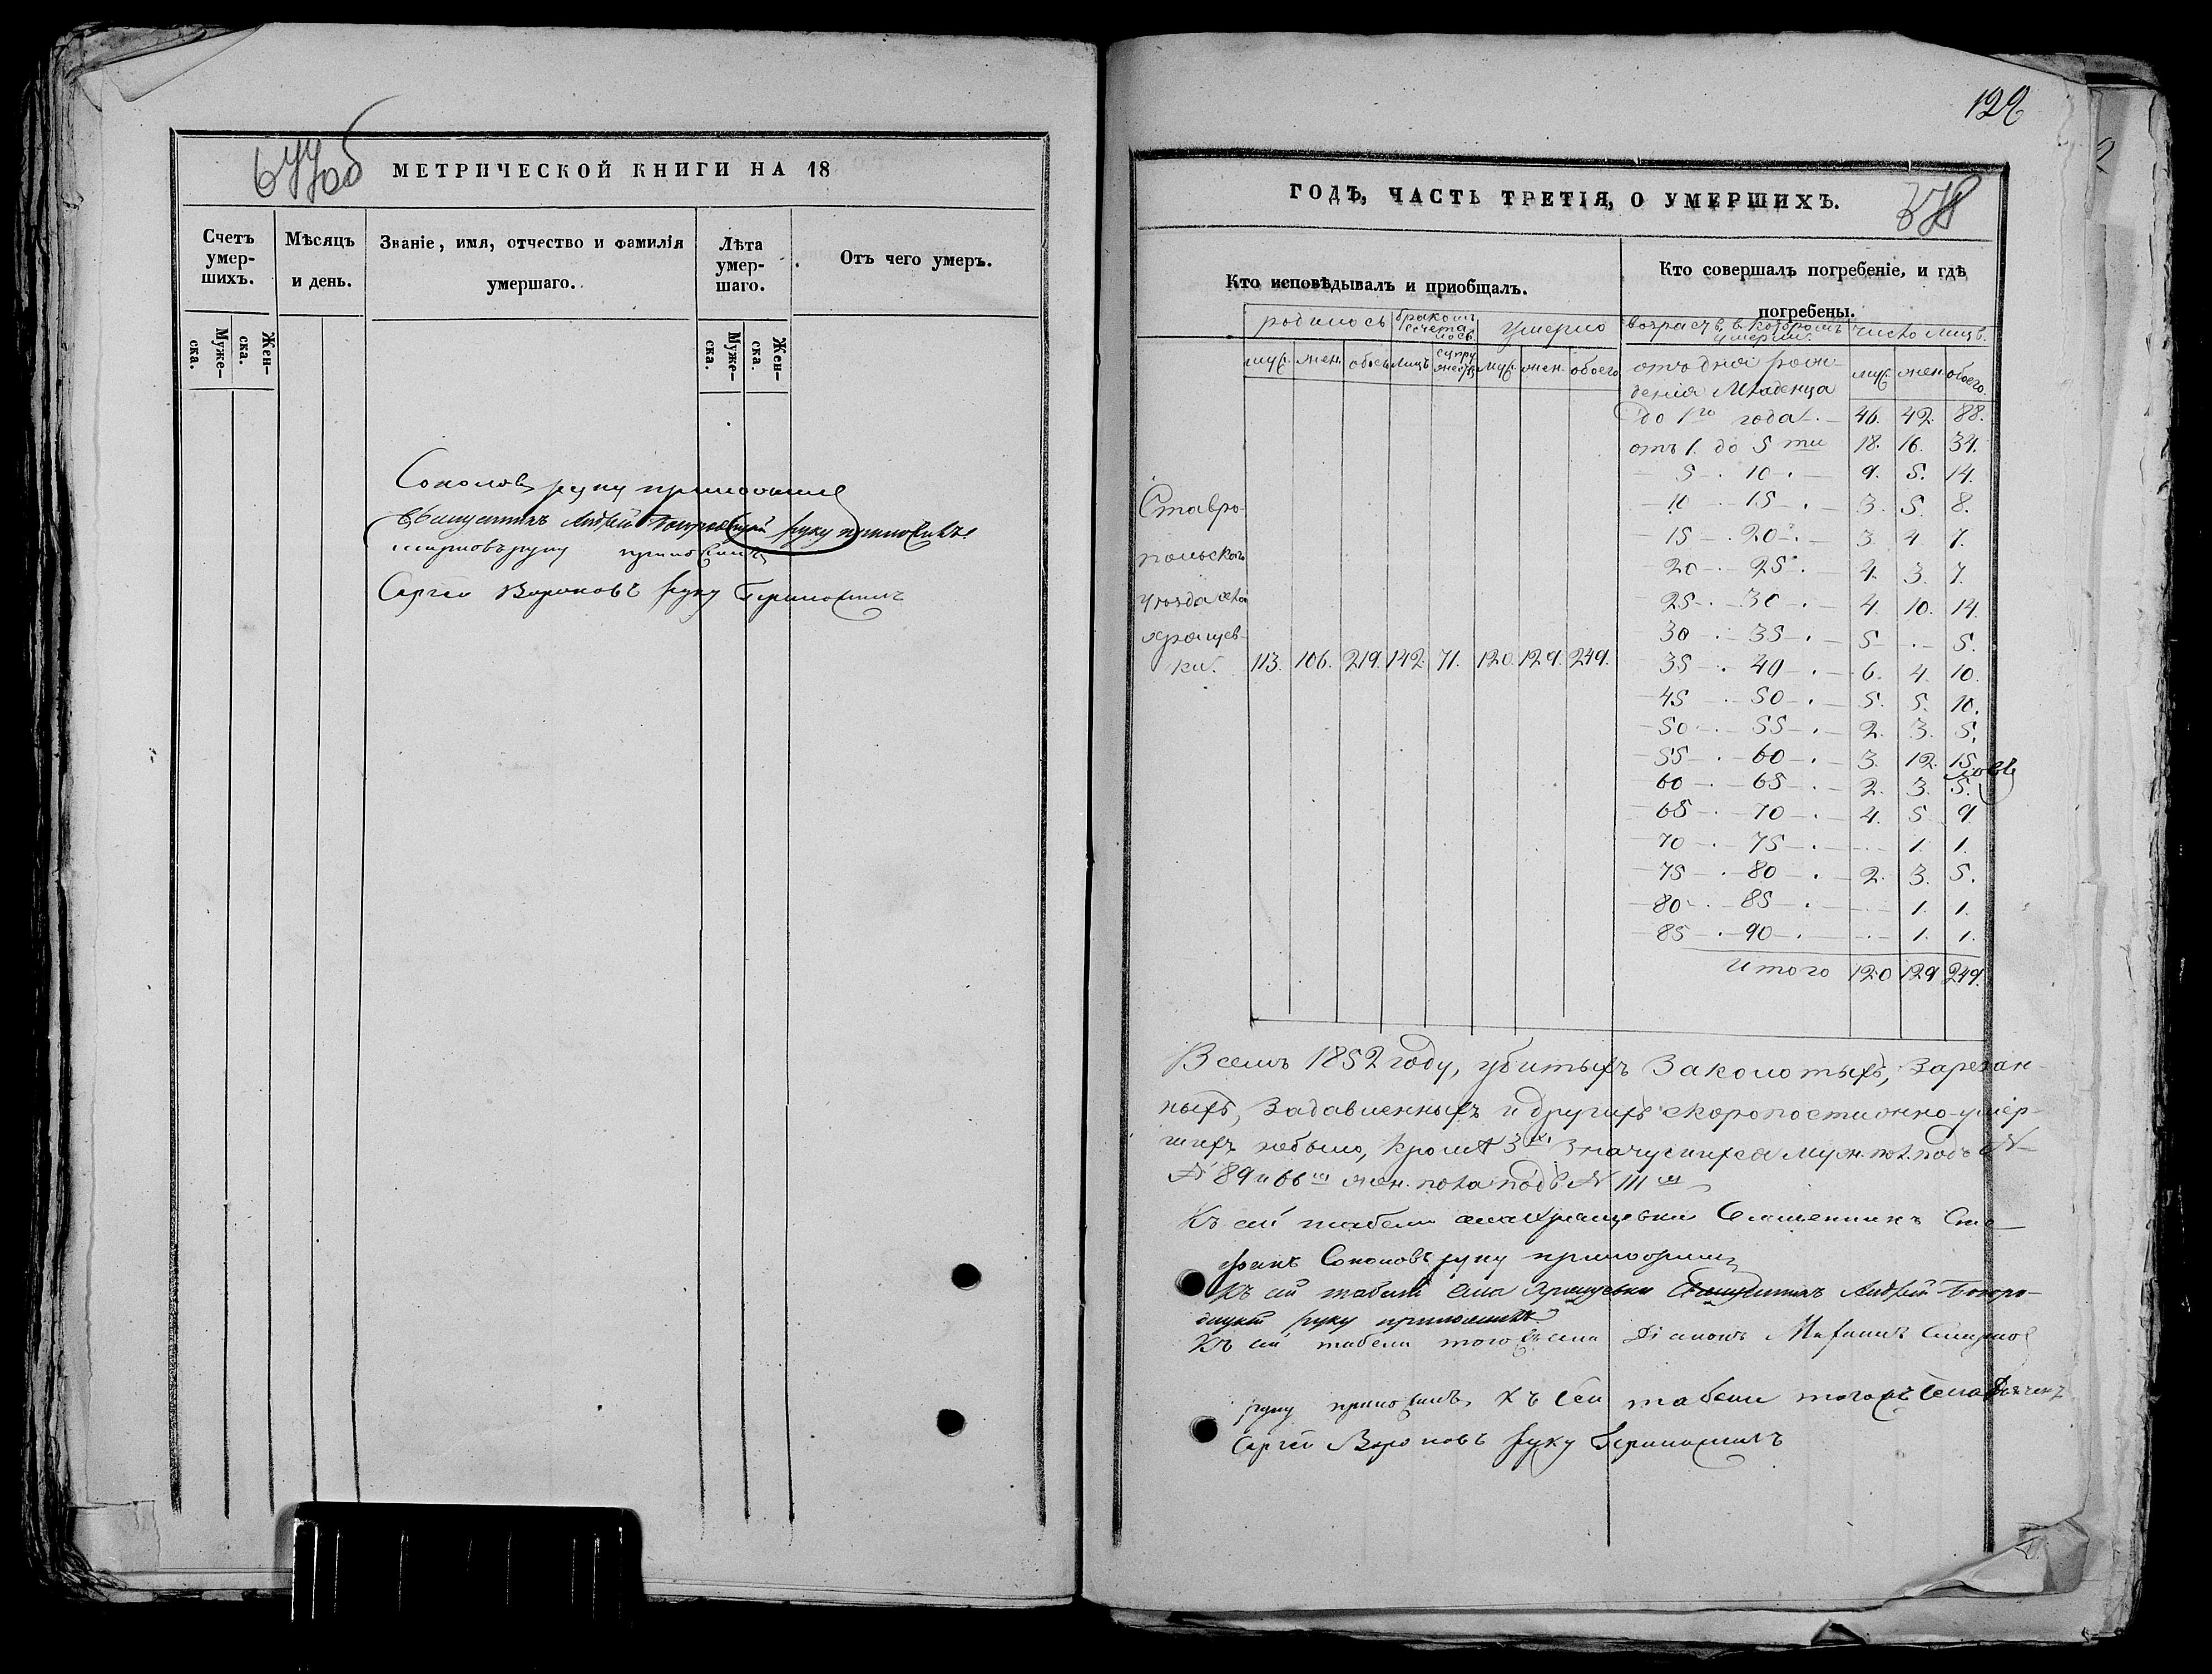 МЕТРИЧЕСКОЙ КНИГИ НА 18
Счетъ умер-шихъ.
Мѣсяцъ и день.
Званіе, имя, отчество и фамилія умершаго.
Лѣта умер-шаго.
Отъ чего умеръ.
Муже-ска.
Жен-ска.
Муже-ска.
Жен-ска.
Соколовъ руку приложилъ
Андрей руку приложилъ
руку приложилъ
Сергей Вороновъ руку приложилъ
122
ГОДЪ, ЧАСТЬ ТРЕТІЯ, О УМЕРШИХЪ.
Кто исповѣдывалъ и приобщалъ.
Кто совершалъ погребеніе, и гдѣ
погребены.
родилось
бракомъ сочета лось
умерло
возрастъ въ которомъ умерли
число лицъ
муж. жен. обоего лицъ супружествъ муж. жен. обоего
муж. жен. обоего
отъ дня рож-
денія Младенца
до 1го года 46. 42. 88.
отъ 1. до 5 ти 18. 16. 34.
5 10 9. 5. 14.
10 15 3. 5. 8.
15 20 3. 4 7.
20 25 4. 3. 7.
25 30 4. 10. 14.
30 35 5 - 5.
35 40 6. 4. 10.
45 50 5. 5. 10.
50 55 2. 3. 5.
55 60 3. 12. 15.
60 65 2. 3. 5.
65 70 4. 5 9
70 75 - 1. 1.
75 80 2. 3. 5.
80 85 - 1. 1.
85 90 - 1. 1.
Итого 120 129 249.
Ставро-
польскаго
уѣзда села
Хрящев-
ки. 113. 106. 219. 142. 71. 120. 129. 249.
В семъ 1852 году, убитыхъ Заколотыхъ, Зарезан-
ныхъ, Задавленныхъ и другихъ скоропостижно умер-
шихъ небыло, кромѣ 3хъ значущихся муж. пол. подъ N
N 89 и 66 жен. пола подъ N 111
Къ сей табели села Хрящевки Священникъ Сте-
фанъ Соколовъ руку приложилъ
Къ сей табели села Хрящевки Андрей Богоро-
руку приложилъ
Къ сей табели тогожъ села Діаконъ Смирнов
руку приложилъ, Къ сей табели тогожъ села
Сергей Вороновъ руку приложилъ